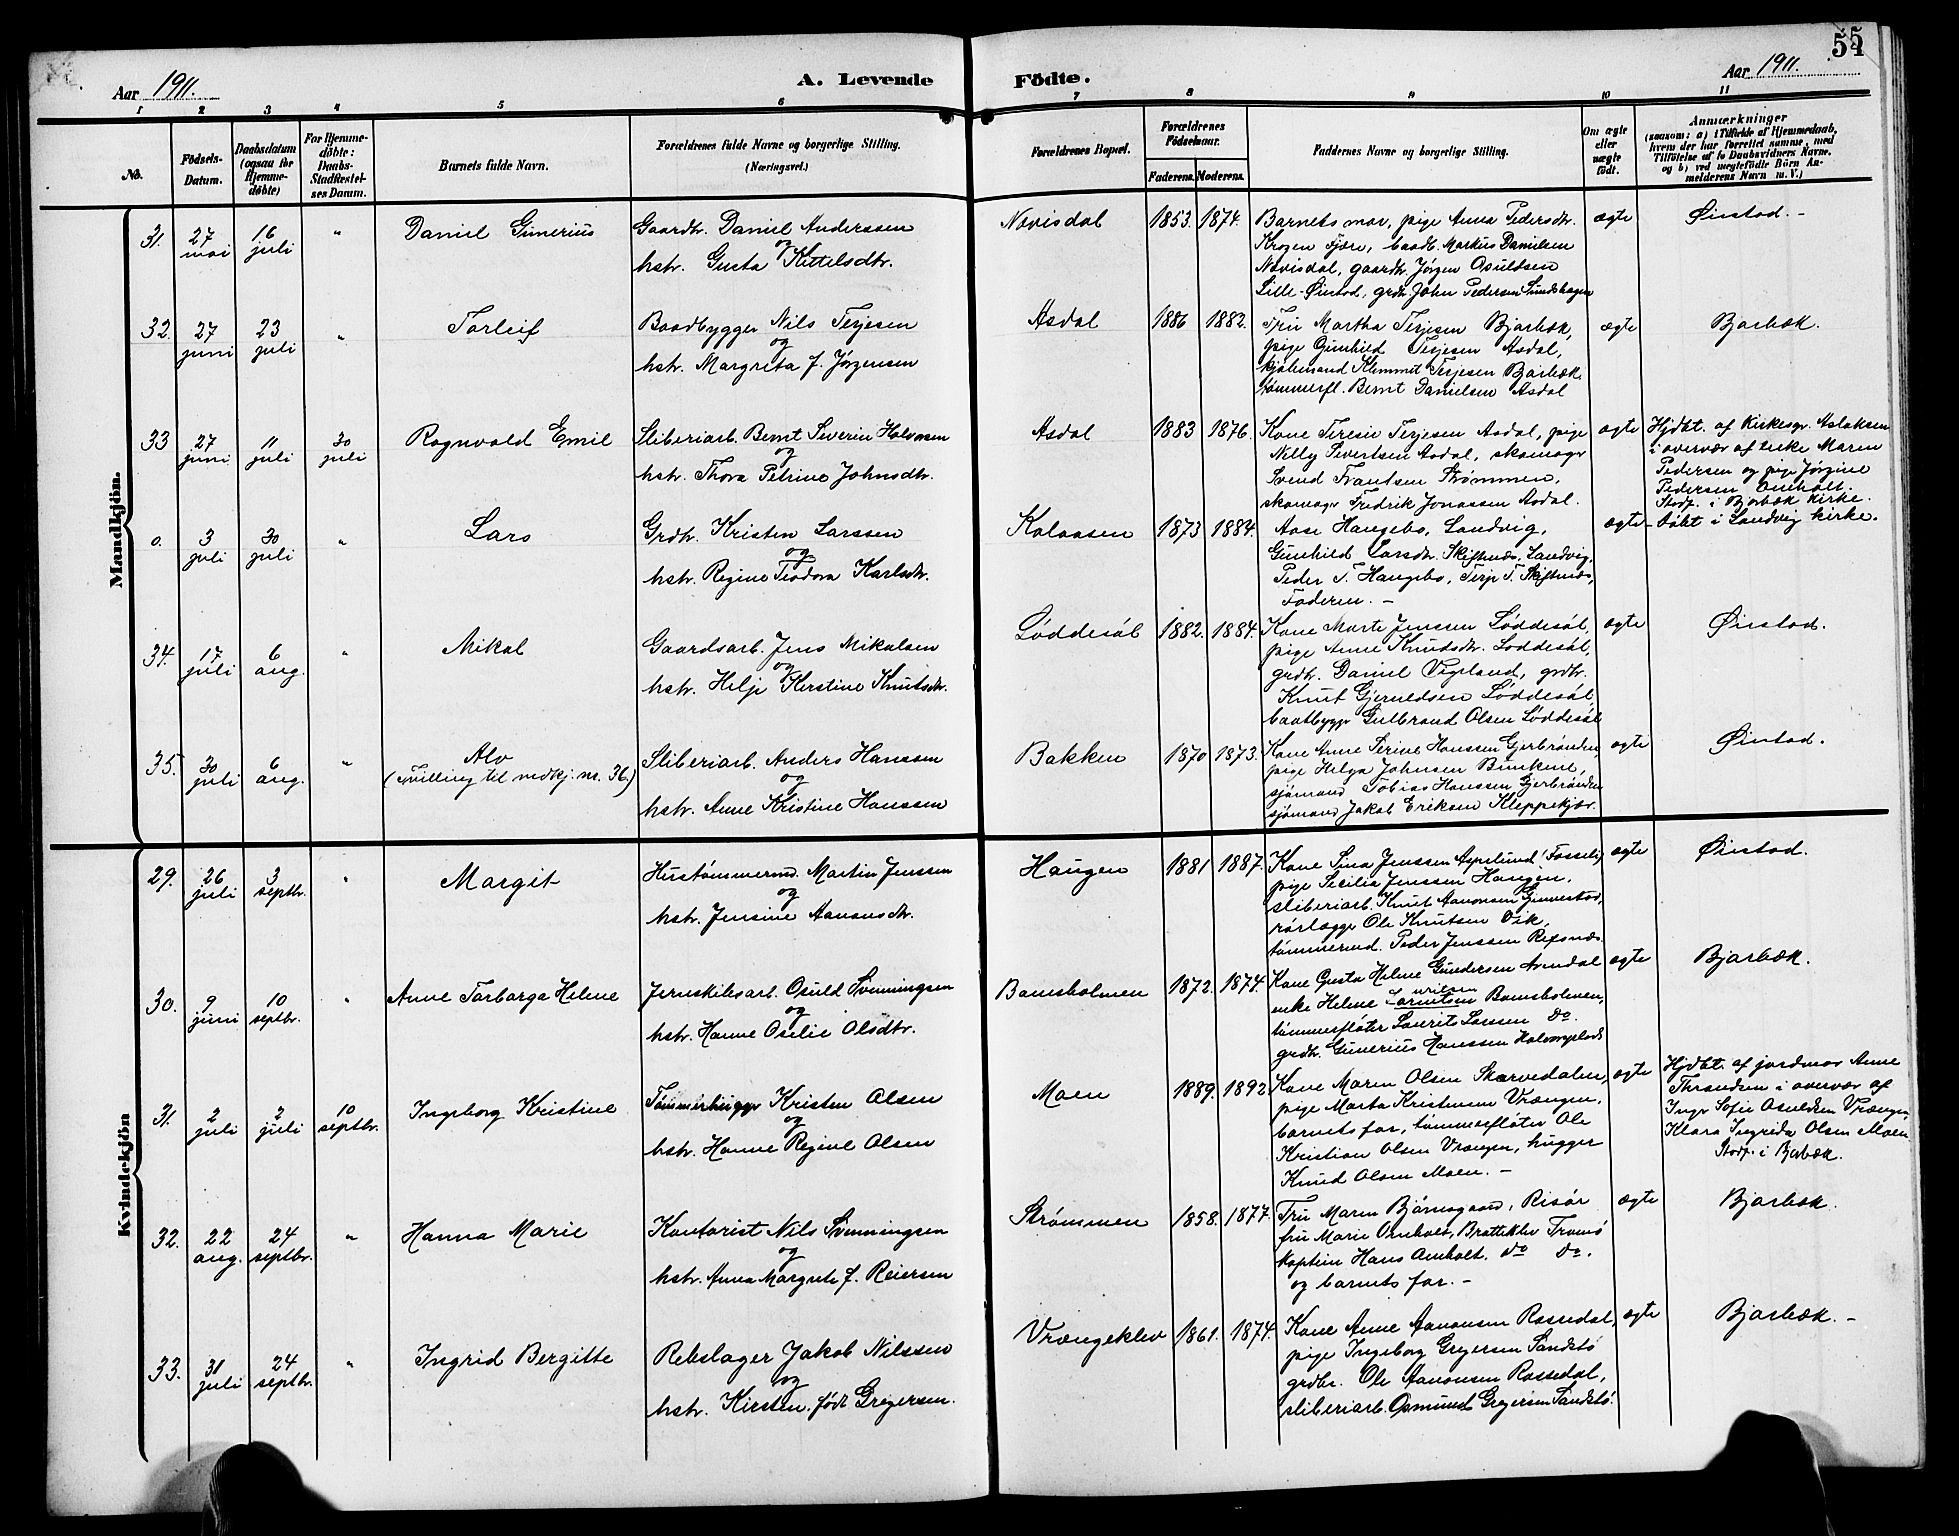 55
Aar 1911.
A. Levende
Fødte.
Aar 1911.
1 2 3 4 5 6 7 8 9 10 11
No.
Fødsels-Datum.
Daabsdatum (ogsaa for Hjemme-døbte)
For Hjemme-døbte: Daabs-Stadfæstel-ses Datum.
Barnets fulde Navn.
Forældrenes fulde Navne og borgerlige Stilling. (Næringsvei.)
Forældrenes Bopæl.
Forældrenes Fødselsaar.
Faderens. Moderens.
Faddernes Navne og borgerlige Stilling.
Om ægte eller uægte født.
Anmærkninger
(saasom: a) i Tilfælde af Hjemmedaab, hvem der har forrettet samme, med Tilføielse af to Daabsvidners Navne, og b) ved uægtefødte Børn An-melderens Navn m. V.)
Mandkjøn.
31. 27 mai 16 juli " Daniel Gunerius
Gaardbr. Daniel Anderssen
og
hstr. Gusta Kittelsdtr.
Nævisdal 1853 1874.
Barnets mor, pige Anna Pedersdtr.
Krogen Fjære, baadb. Markus Danielsen
Nævisdal, gaardbr. Jørgen Osuldsen
Lille-Øiestad, grdbr. John Pedersen Sundshagen
ægte Øiestad. -
32. 27 juni 23 juli " Torleif
Baadbygger Nils Terjesen
og
hstr. Margrita f. Jørgensen
Asdal 1886 1882.
Fru Martha Terjesen Bjorbæk,
pige Gunhild Terjesen Asdal,
Klemmet Terjesen Bjorbæk
tømmerfl. Bernt Danielsen Asdal
ægte Bjorbæk.
33 27 juni 11 juli 30 juli Rognvald Emil
Sliberiarb. Bernt Severin Halvorsen
og
hstr. Thora Petrine Johnsdtr.
Asdal 1883 1876.
Kone Teresie Terjesen Asdal, pige
Nelly Sivertsen Asdal, skomager
Svend Frantsen Strømmen,
skomager Fredrik Jonassen Asdal.
ægte
Hjdbt. af Kirkesgr. Aslaksen
i overvær af enke Maren
Pedersen og pige Jørgine
Pedersen Omholt.
Stadf. i Bjorbæk kirke.
o. 3 juli 30 juli " Lars
Grdbr. Kristen Larssen
og
hstr. Regine Teodora Karlsdtr.
Kalaasen 1873 1884.
Aase Haugebo, Landvig,
Gunhild Larsdtr. Skiftnæs, Landvig,
Peder T. Haugebo, Terje T. Skiftnæs,
Faderen. -
ægte - Døbt i Landvig kirke.
34. 17 juli 6 aug. " Mikal
Gaardsarb. Jens Mikalsen
og
hstr. Helje Kirstine Knutsdtr.
Løddesøl 1882. 1884.
Kone Marte Jenssen Løddesøl,
pige Anne Knudsdtr. Løddesøl,
grdbr. Daniel Vegeland, grdbr.
Knut Gjeruldsen Løddesøl,
baatbygger Gulbrand Olsen Løddesøl
ægte Øiestad.
35. 30 juli 6 aug. " Alv
(Tvilling til mdkj. nr. 36.)
Sliberiarb. Anders Hanssen
og
hstr. Anne Kristine Hanssen
Bakken 1870 1873.
Kone Anne Serine Hanssen Gjerbrønden,
pige Helga Johnsen Bunkene,
sjømand Tobias Hanssen Gjerbrønden
sjømand Jakob Eriksen Kleppekjær.
ægte Øiestad.
Kvindekjøn
29. 26 juli 3 septbr. " Margit
Hustømmermd. Martin Jenssen
og
hstr. Jensine Aanonsdtr.
Haugen 1881 1887.
Kone Sina Jenssen
pige Secilia Jenssen Haugen,
sliberiarb. Knut Aanonsen
rørlægger Ole Knutsen Vik,
tømmermd. Peder Jenssen Refsnæs.
ægte Øiestad.
30. 9 juni 10 septbr. " Anne Torborga Helene
Jernskibsarb. Osuld Svenningsen
og
hstr. Hanne Oselie Olsdtr.
Bomsholmen 1872. 1874.
Kone Gusta Helene Gundersen Arendal
enke Helene Bomsholmen,
tømmerfløter Laurits Larssen do.
grdbr. Gunerius Hanssen
ægte Bjorbæk.
31. 2 juli 2 juli 10 septbr. Ingeborg Kristine
Tømmerhugger Kristen Olsen
og
hstr. Hanne Regine Olsen
Moen 1889. 1892
Kone Maren Olsen Skarvedalen,
pige Marta Kristensen Vrængen,
barnets far, tømmerfløter Ole
Kristian Olsen Vrængen, hugger
Knud Olsen Moen. -
ægte
Hjdbt. af jordmor Anne
Thrandsen i overvær af
Inger Sofie Osuldsen Vrængen,
Klara Ingrida Olsen Moen
Stadf. i Bjorbæk.
32. 22 aug. 24 septbr. " Hanna Marie
Kontorist Nils Svenningsen
og
hstr. Anna Margrete f. Reiersen
Strømmen 1858. 1877.
Fru Maren Bjørnsgaard, Risør
fru Marie Omholt, Brattekleiv Tromø
kaptein Hans Omholt. do do.
og barnets far. -
ægte Bjorbæk.
33. 31 juli 24 septbr. " Ingrid Bergitte
Rebslager Jakob Nilssen
og
hstr. Kirsten, født Gregersen.
Vrængekleiv 1861. 1874.
Kone Anne Aanonsen Rossedal,
pige Ingeborg Gregersen Sandstø
grdbr. Ole Aanonsen Rossedal,
sliberiarb. Osmund Gregersen Sandstø.
ægte Bjorbæk. -